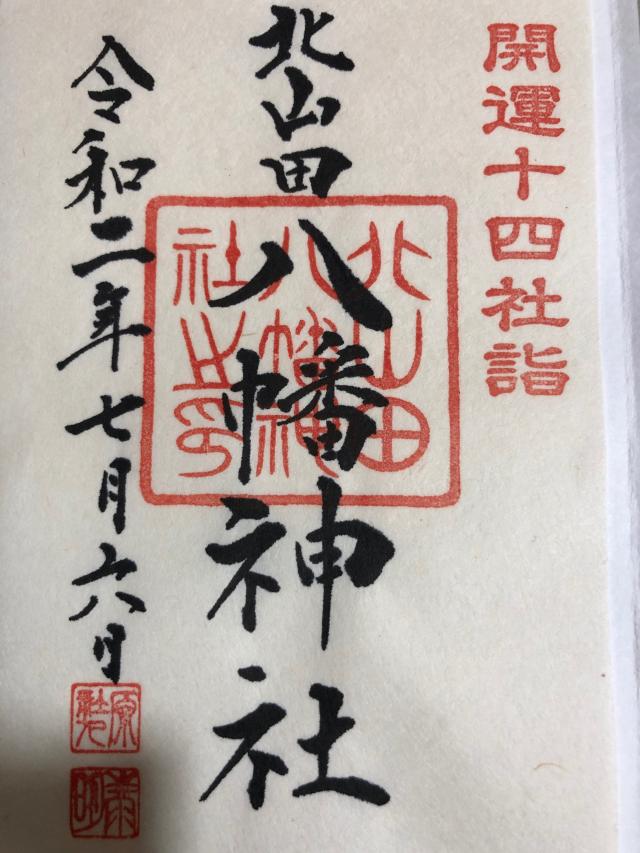 開運十四社詣
北山田八幡神社
北山田八幡神社之印
令和二年七月六日